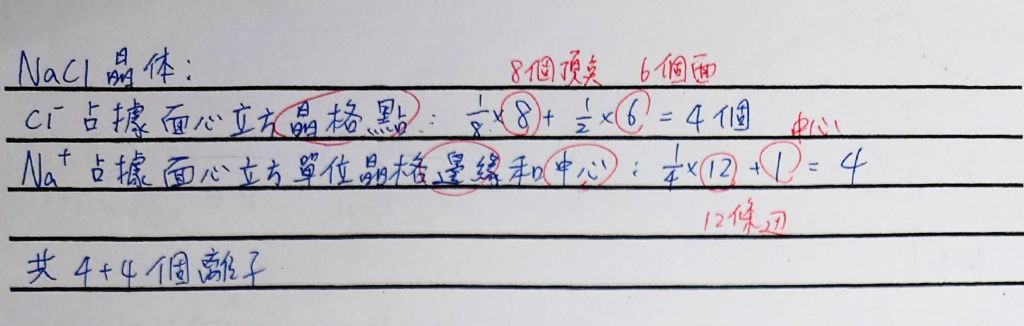 NaCl 晶体:
8個頂点 6個面
Cl⁻ 占據面心立方晶格點: 1/8×8 + 1/2×6 = 4個
中心
Na⁺ 占據面心立方單位晶格邊緣和中心: 1/4×12 + 1 = 4
12條边
共 4+4個離子